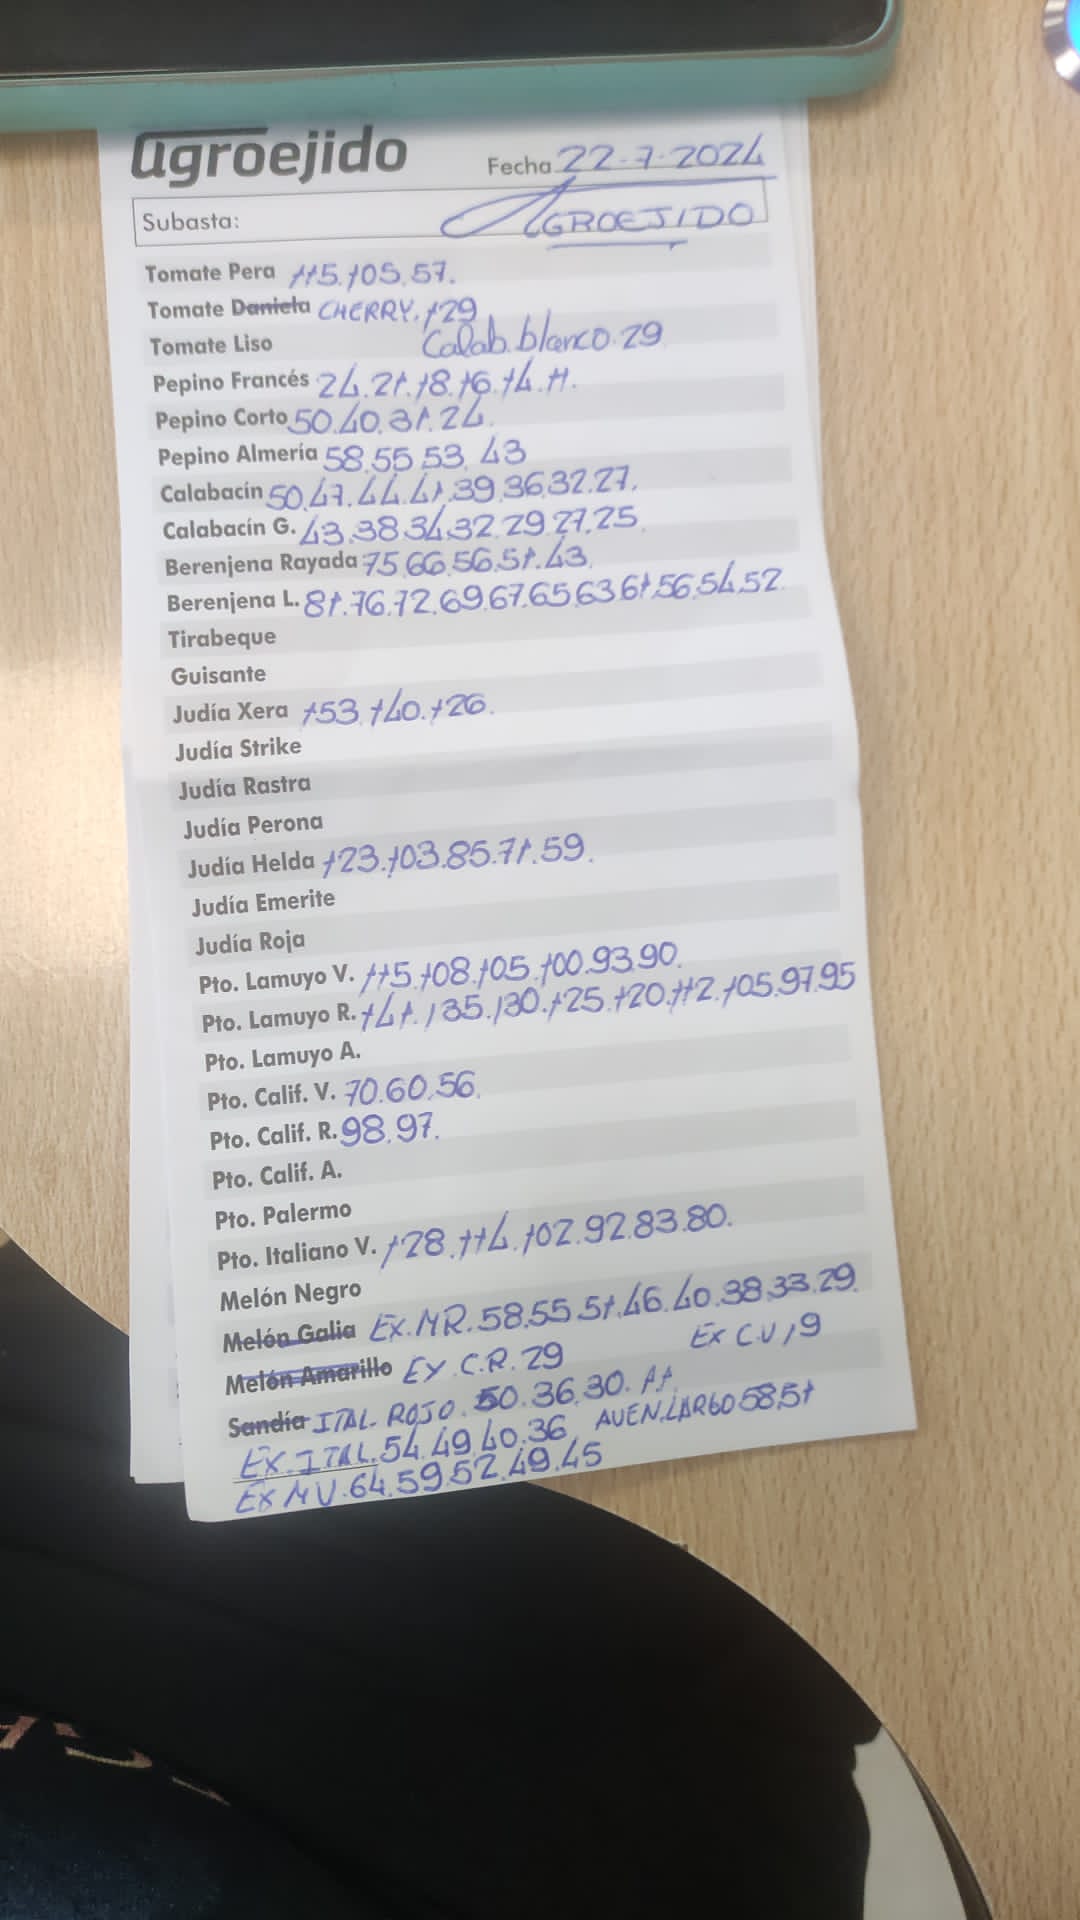 agroejido Fecha 22-7-2024
Subasta: AGROEJIDO
Tomate Pera 115.105.57.
Tomate Daniela CHERRY.129
Tomate Liso Calab.blanco.29
Pepino Francés 24.21.18.16.14.11.
Pepino Corto 50.40.31.24.
Pepino Almería 58.55.53.43
Calabacín 50.47.44.41.39.36.32.27.
Calabacín G. 43.38.34.32.29.27.25.
Berenjena Rayada 75.66.56.51.43.
Berenjena L. 81.76.72.69.67.65.63.61.56.54.52.
Tirabeque
Guisante
Judía Xera 153.140.126.
Judía Strike
Judía Rastra
Judía Perona
Judía Helda 123.103.85.71.59.
Judía Emerite
Judía Roja
Pto. Lamuyo V. 115.108.105.100.93.90.
Pto. Lamuyo R. 141.135.130.125.120.112.105.97.95
Pto. Lamuyo A.
Pto. Calif. V. 70.60.56.
Pto. Calif. R. 98.97.
Pto. Calif. A.
Pto. Palermo
Pto. Italiano V. 128.114.102.92.83.80.
Melón Negro
Melón Galia EX.MR.58.55.51.46.40.38.33.29.
Melón Amarillo EX C.R.29 EX C.V 19
Sandía ITAL. ROJO.50.36.30.
EX.ITAL.54.49.40.36 AVEN.LARGO 58.51
EX MV.64.59.52.49.45